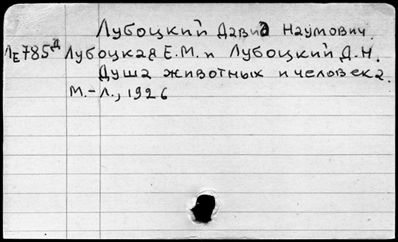 Лубоцкий Давид Наумович.
ЛЕ785Д Лубоцкая Е.М. и Лубоцкий Д.Н.
Душа животных и человека.
М.-Л., 1926